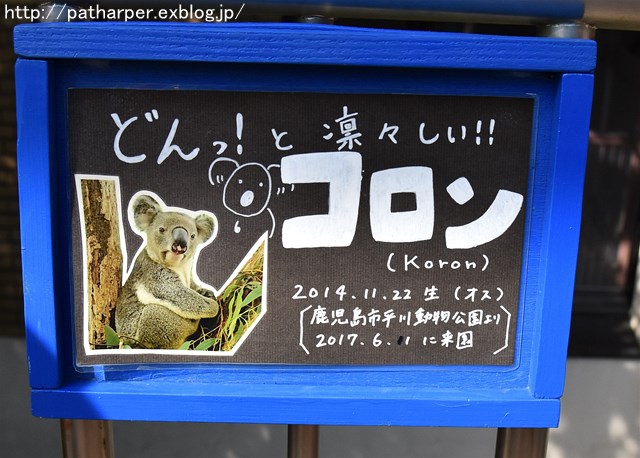 http://patharper.exblog.jp/
どんっ!と 凛々しい!!
コロン
(Koron)
2014.11.22 生 (オス)
鹿児島市平川動物公園より
2017.6.11 に来園